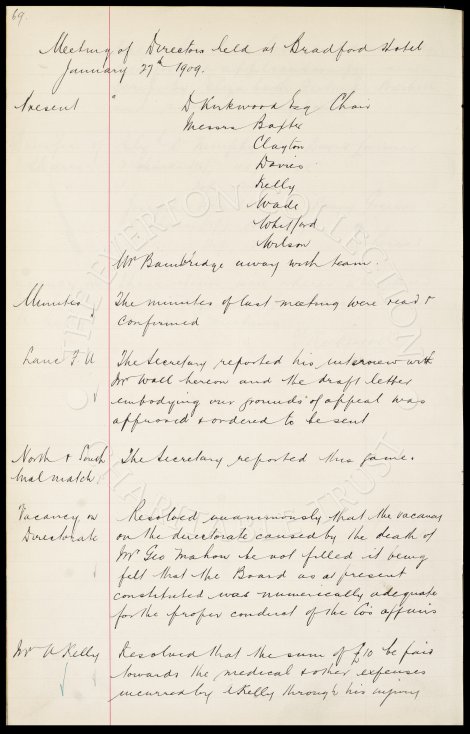 69.
Meeting of Directors held at Bradford Hotel
January 27th 1909.
Present " D Kirkwood Esq Chair
Messrs Baxter
Clayton
Davies
Kelly
Wade
Whitford
Wilson
Mr Bainbridge away with team.
Minutes The minutes of last meeting were read &
confirmed
Lanc F A The Secretary reported his interview with
Mr Wall hereon and the draft letter
embodying our grounds of appeal was
approved & ordered to be sent
North & South The Secretary reported this game.
trial match
Vacancy on Resolved unanimously that the vacancy
Directorate on the directorate caused by the death of
Mr Geo Mahon be not filled it being
felt that the Board as at present
constituted was numerically adequate
for the proper conduct of the Co's affairs
Mr A Kelly Resolved that the sum of £10 be paid
towards the medical & other expenses
incurred by Kelly through his injury
THE EVERTON COLLECTION
CHARITABLE TRUST